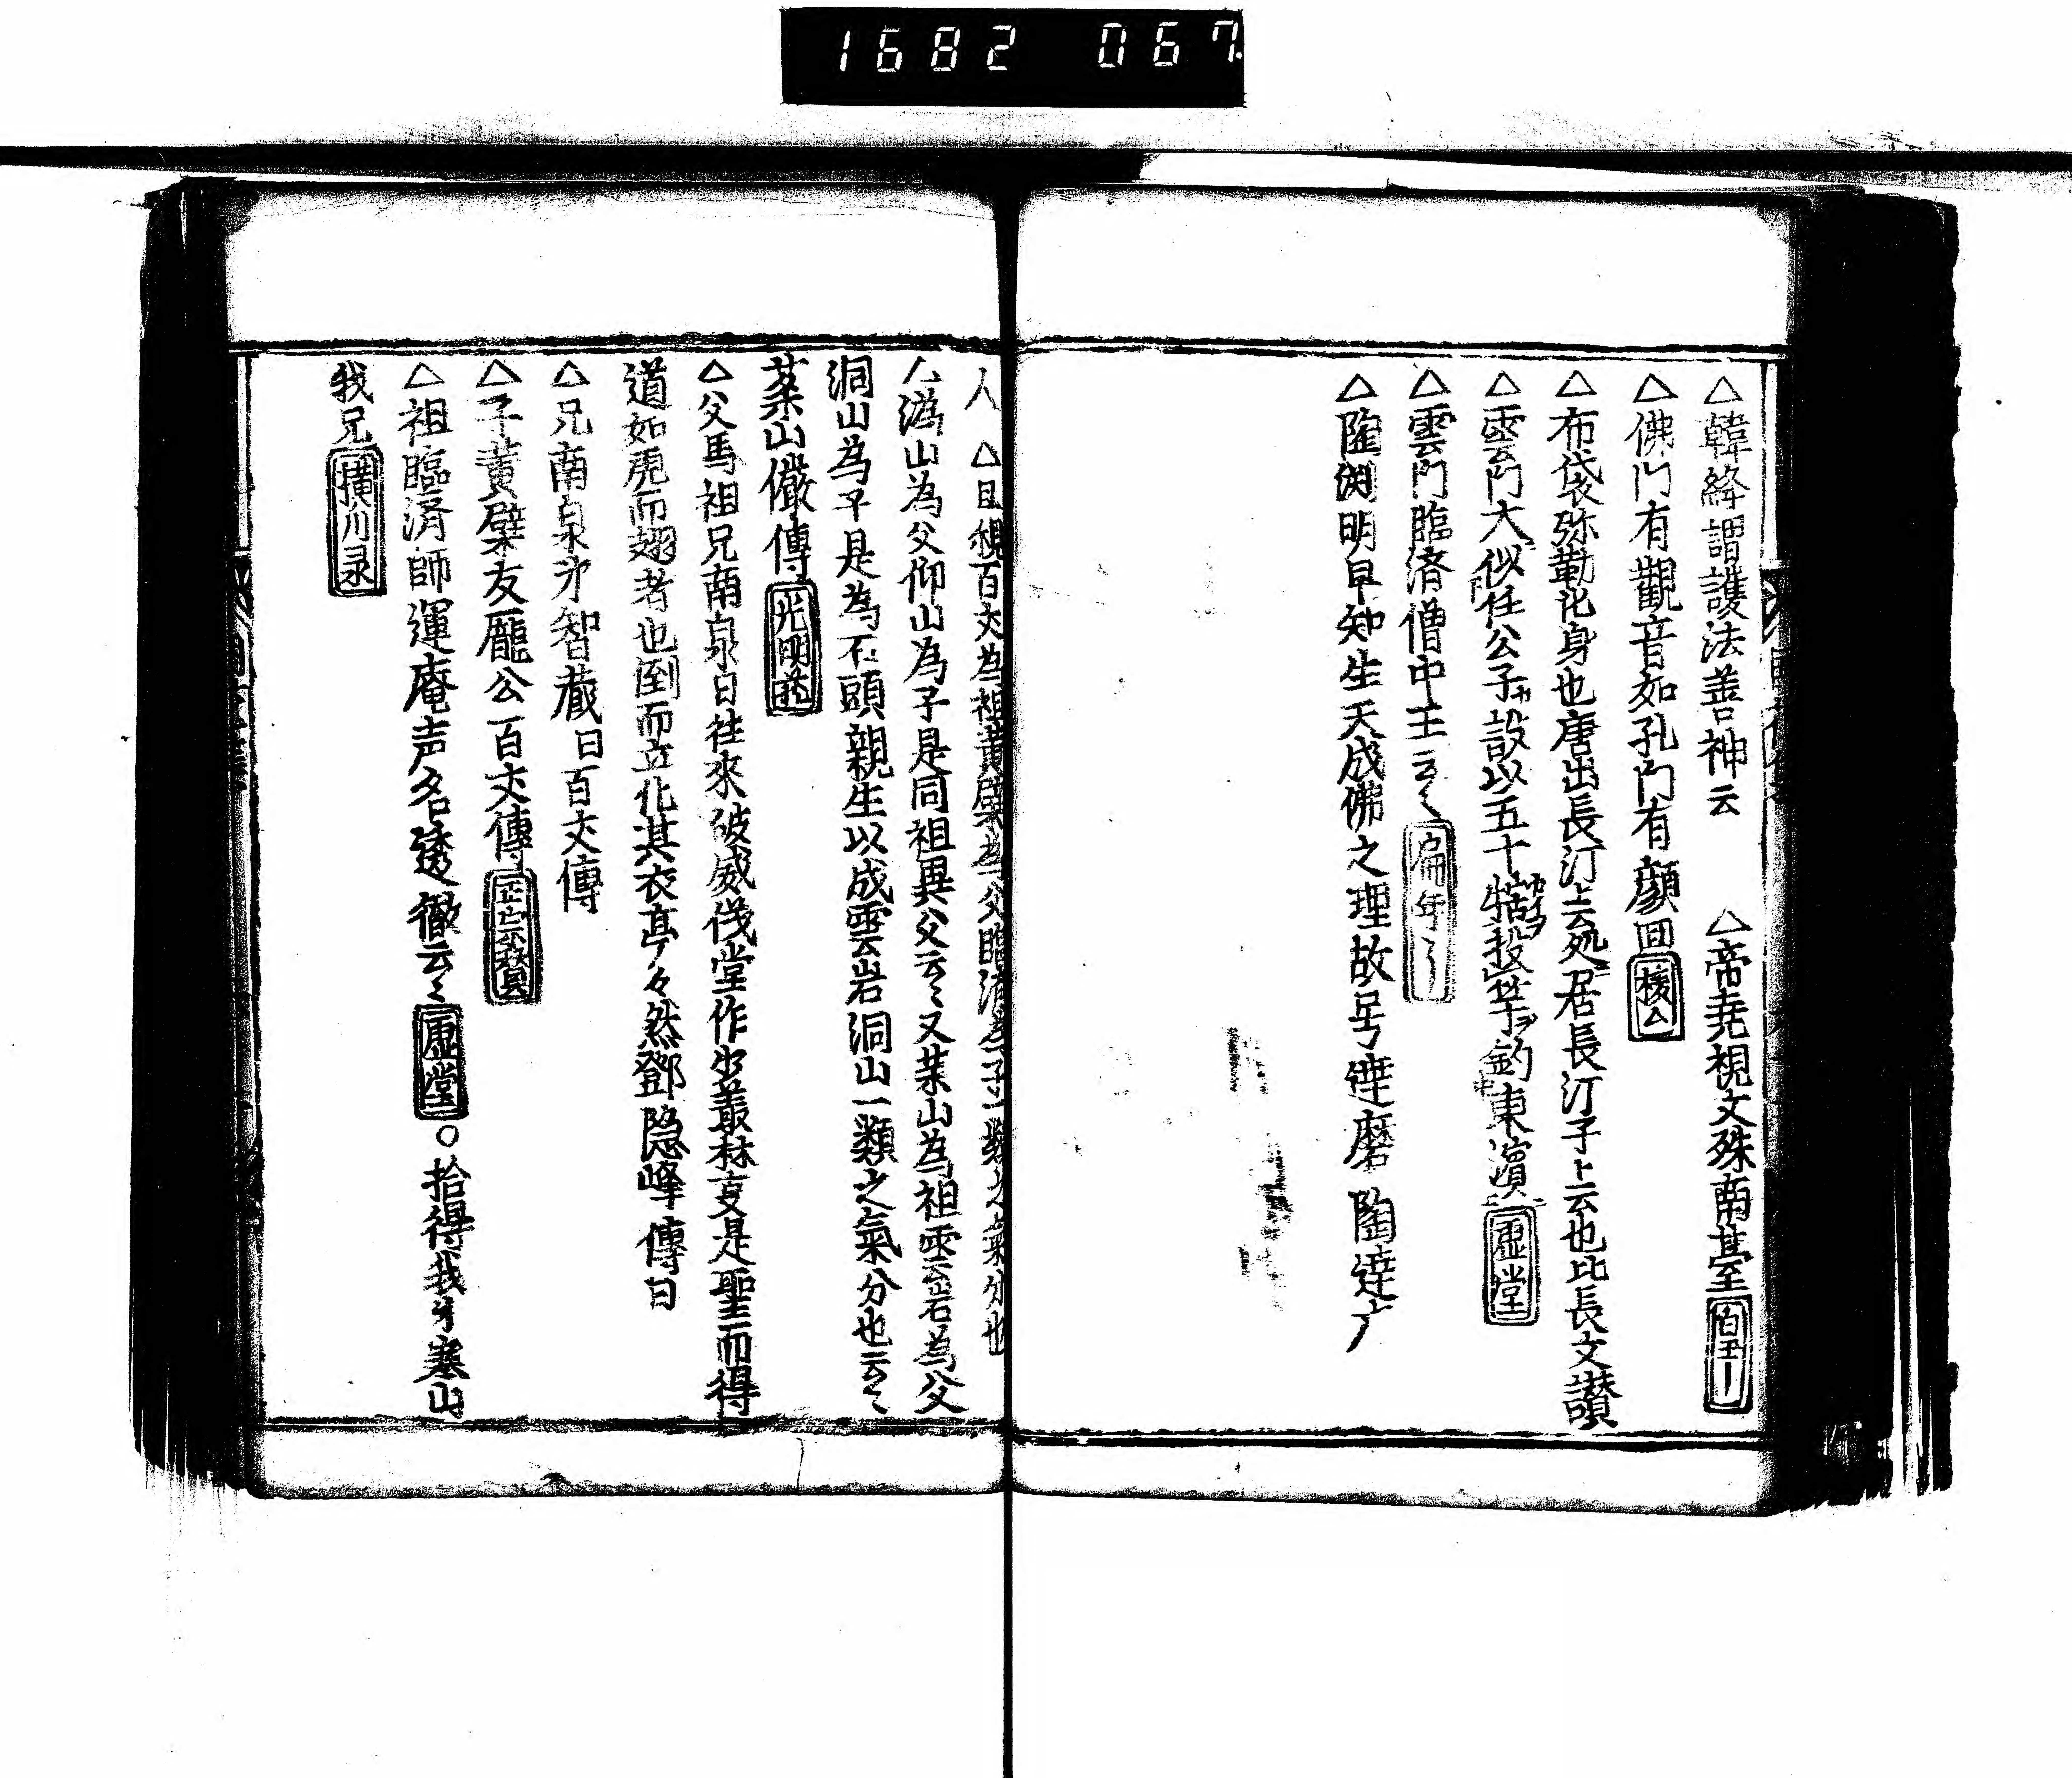 1682 067
△韓絳謂護法善神云 △帝堯視文殊南甚至
△佛門有觀音如孔門有顔回
△布袋弥勒化身也唐出長汀上云処居長汀子上云也比長文讃
△雲門大似任公子設以五十犗投竿釣東濵 虚堂
△雲門臨済僧中王云〻
△陶渕明早知生天成佛之理故号達磨 陶達广
人 △且視百丈為祖黄檗為父臨済為子一類之氣分也
人潙山為父仰山為子是同祖異父云〻又葉山為祖雲岩為父
洞山為子是為石頭親生以成雲岩洞山一類之氣分也云〻
葉山儼傳 光明藏
△父馬祖兄南泉日往來破威伐堂作出叢林
是聖而得
道如虎而翅者也倒而立化其衣亭々然鄧隠峰傳曰
△兄南泉㐧智蔵曰百丈傳
△子黄檗友龐公百丈傳 正宗賛
△祖臨済師運庵声名透徹云〻 虚堂 ○拾得我㐧寒山
我兄 横川录